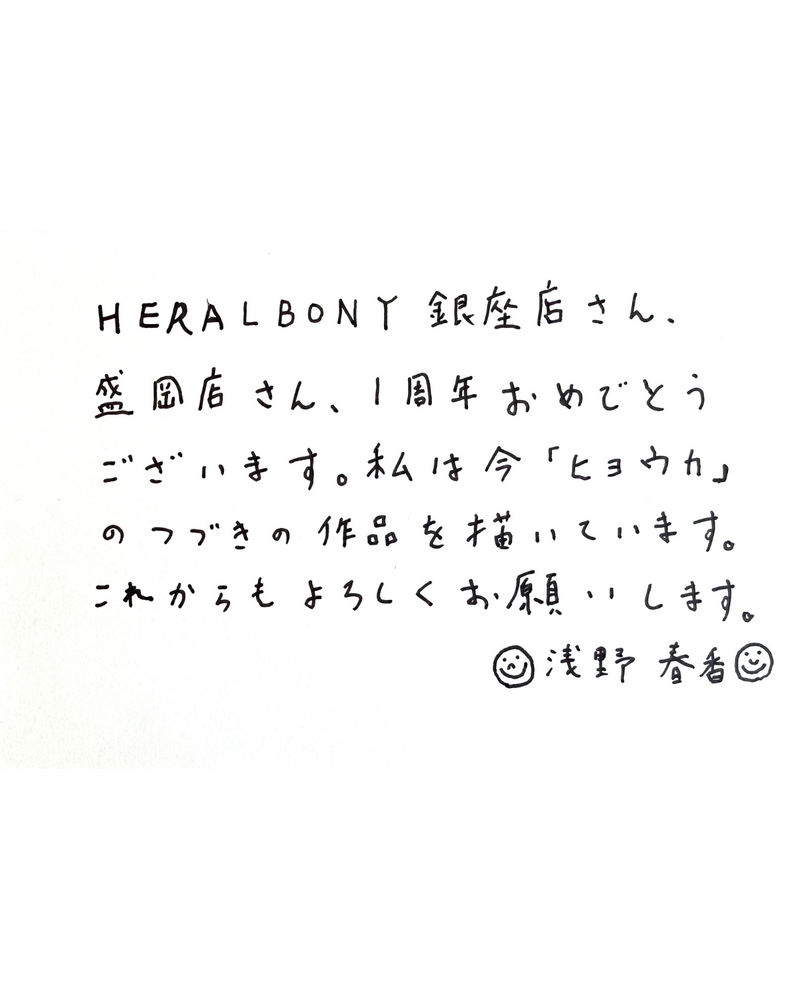 HERALBONY 銀座店さん、
盛岡店さん、1周年おめでとう
ございます。私は今「ヒョウカ」
のつづきの作品を描いています。
これからもよろしくお願いします。
☺浅野 春香☺